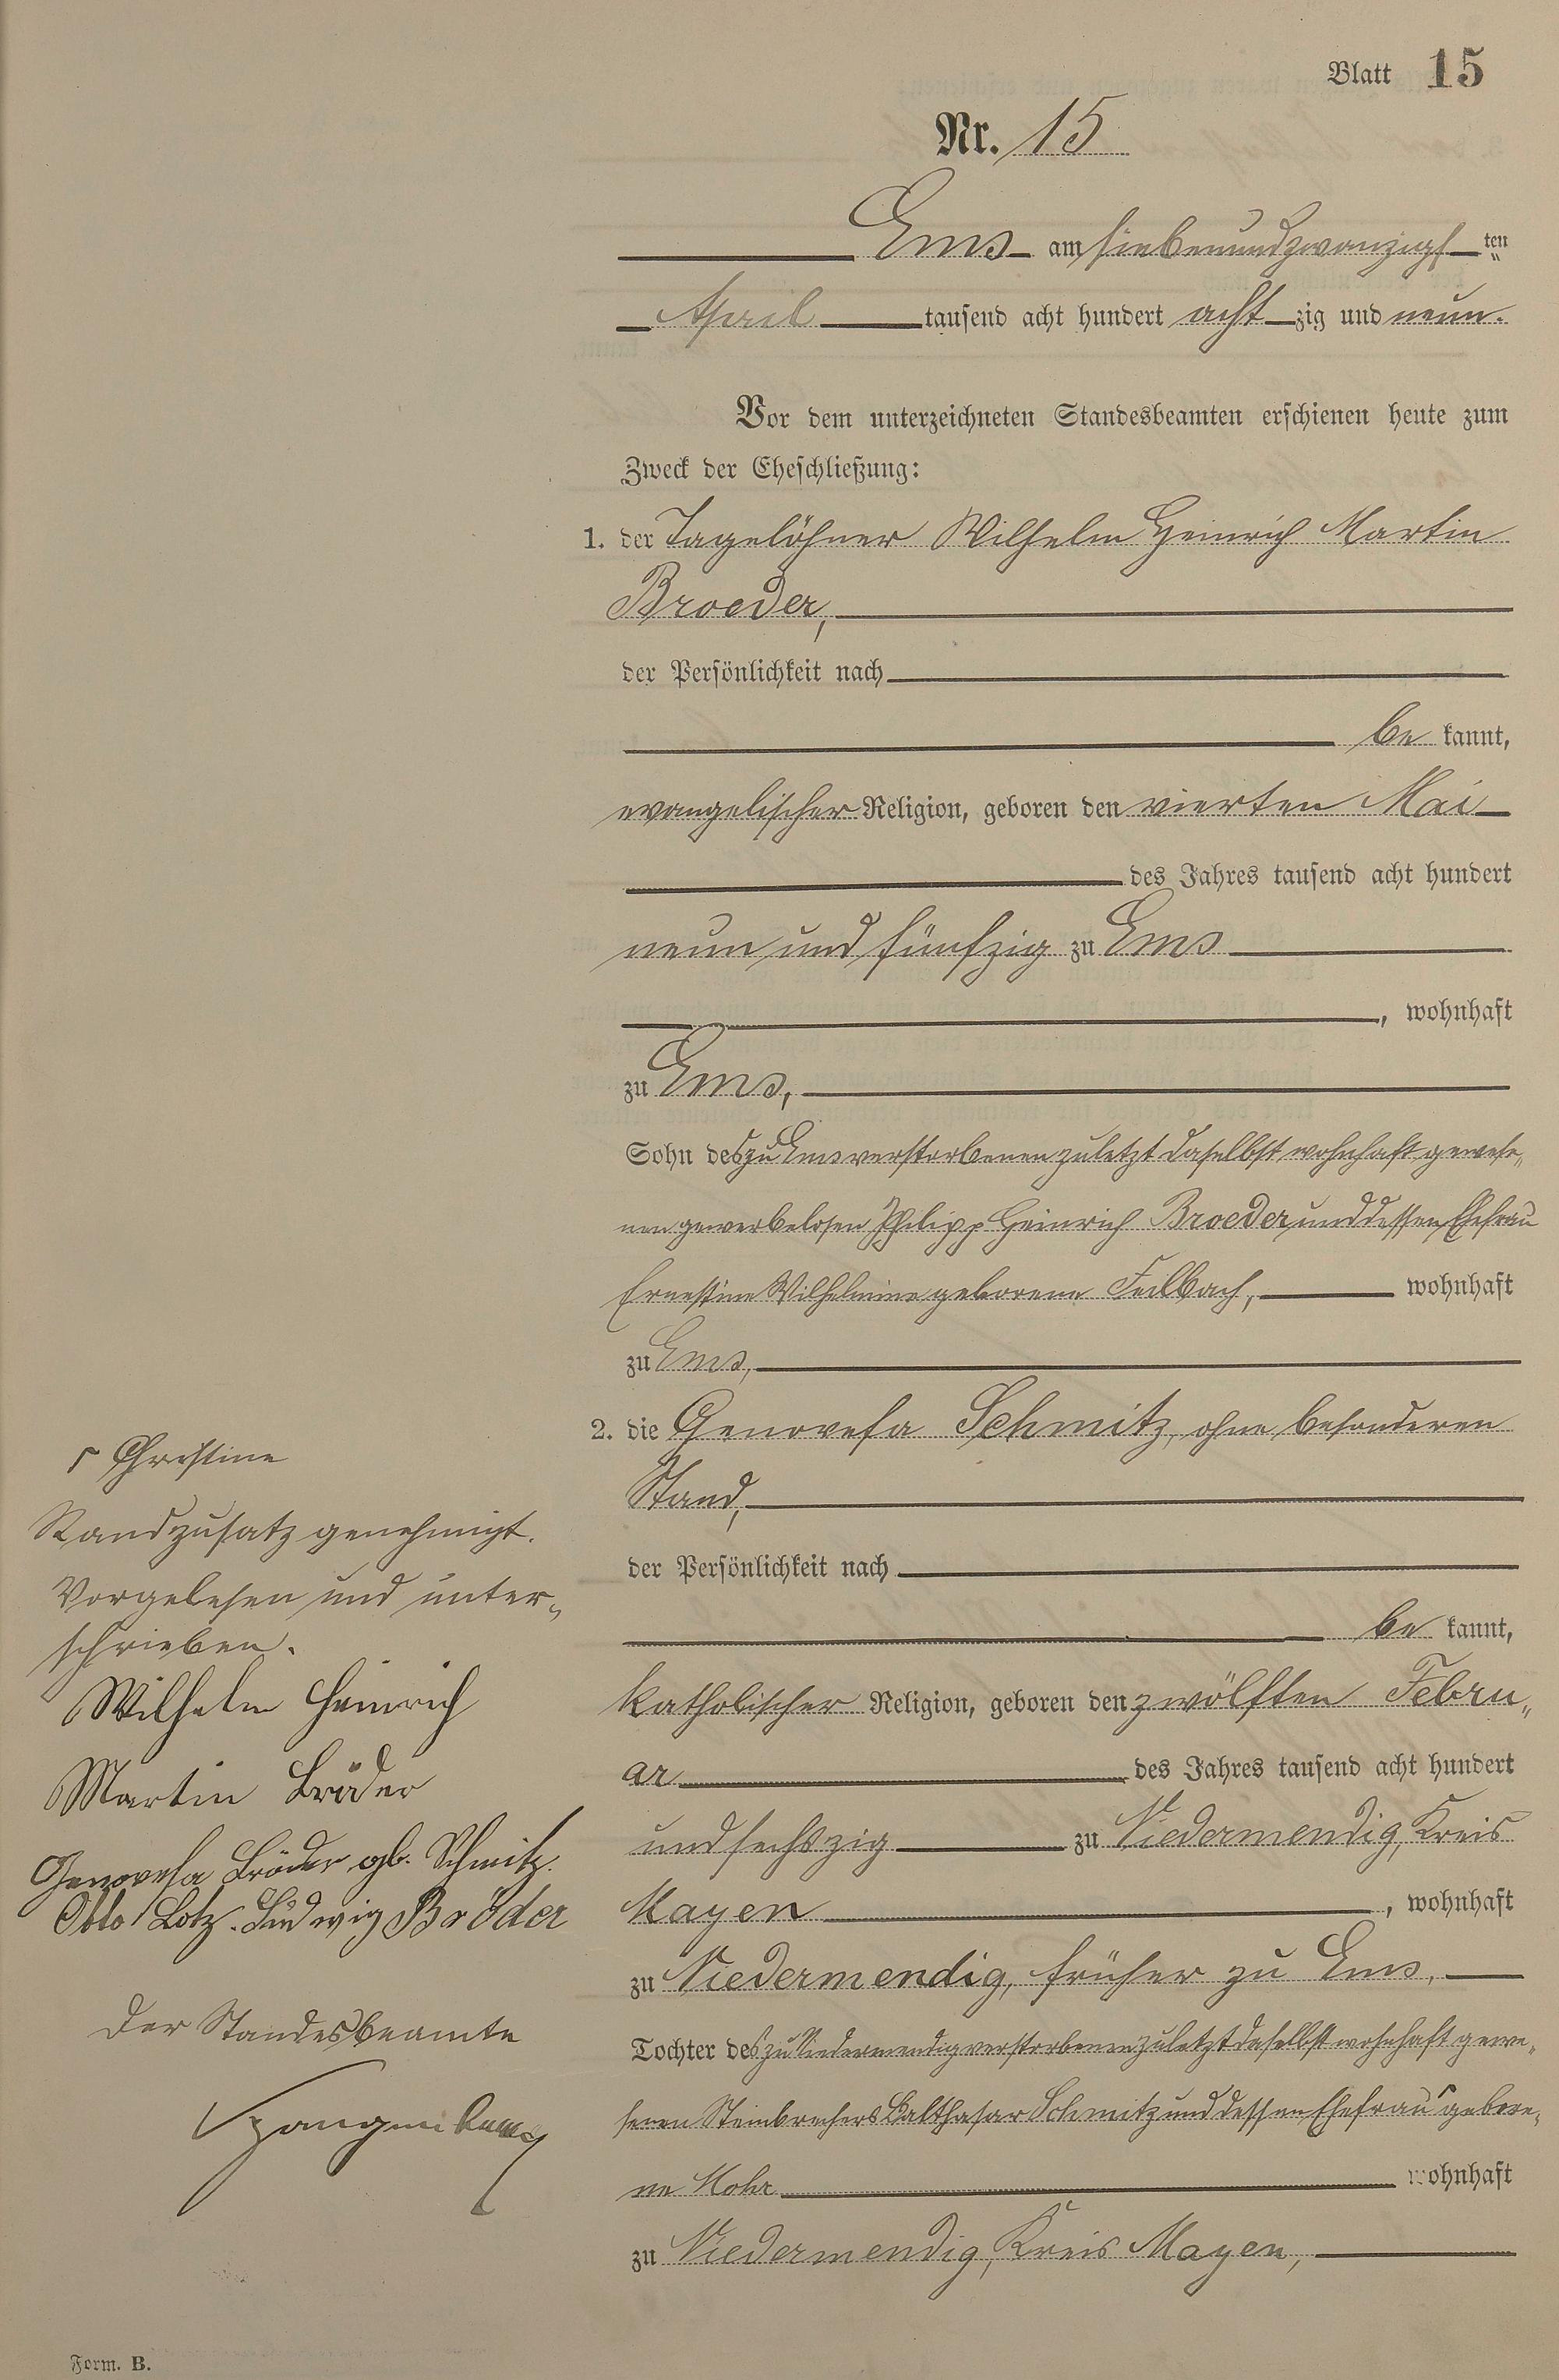 Blatt 15
Nr. 15
Ems am siebenundzwanzigsten
April tausend acht hundert achtzig und neun.
Vor dem unterzeichneten Standesbeamten erschienen heute zum
Zweck der Eheschließung:
1. der Tagelöhner Wilhelm Heinrich Martin
Broeder,
der Persönlichkeit nach
be kannt,
evangelischer Religion, geboren den vierten Mai
des Jahres tausend acht hundert
neun und fünfzig zu Ems
, wohnhaft
zu Ems,
Sohn des zu Ems verstorbenen zuletzt daselbst wohnhaft gewese„
nen gewerbelosen Philipp Heinrich Broeder und dessen Ehefrau
Ernestine Wilhelmine geborene Feilbach, wohnhaft
zu Ems,
2. die Genovefa Schmitz, ohne besonderen
Stand,
der Persönlichkeit nach
be kannt,
katholischer Religion, geboren den zwölften Febru„
ar des Jahres tausend acht hundert
und sechszig zu Niedermendig, Kreis
Mayen , wohnhaft
zu Niedermendig, früher zu Ems,
Tochter des zu Niedermendig verstorbenen zuletzt daselbst wohnhaft gewe„
senen Steinbrechers Balthasar Schmitz und dessen Ehefrau ⌈ gebore„
ne Mohr wohnhaft
zu Niedermendig, Kreis Mayen,
⌈ Christine
Randzusatz genehmigt.
Vorgelesen und unter„
schrieben.
Wilhelm Heinrich
Martin Bröder
Genovefa Bröder gb. Schmitz.
Otto Lotz. Ludwig Bröder
Der Standesbeamte
Form. B.